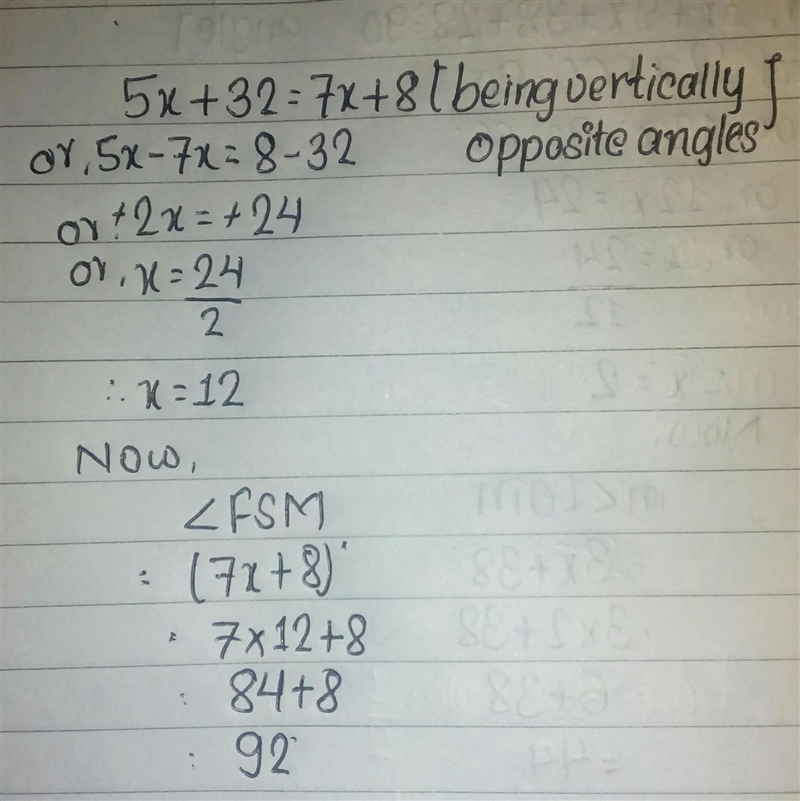 5x+32=7x+8 [being vertically
or, 5x-7x=8-32 opposite angles]
or +2x=+24
or, x=24/2
∴ x=12
Now,
∠FSM
= (7x+8)°
= 7×12+8
: 84+8
: 92°